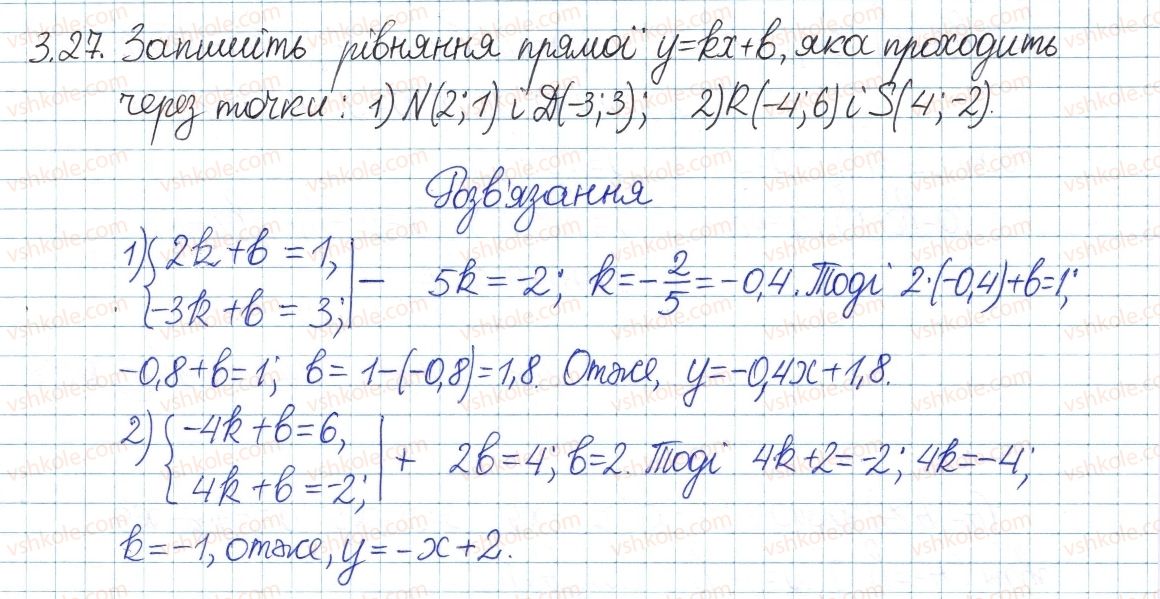 3.27. Запишіть рівняння прямої y=kx+b, яка проходить
через точки: 1) N(2;1) і D(-3;3); 2) R(-4;6) і S(4;-2).
Розв'язання
1) {2k+b=1, | − 5k=-2; k=-2/5=-0,4. Тоді 2·(-0,4)+b=1;
{-3k+b=3; |
-0,8+b=1; b=1-(-0,8)=1,8. Отже, y=-0,4x+1,8.
2) {-4k+b=6, | + 2b=4; b=2. Тоді 4k+2=-2; 4k=-4;
{4k+b=-2; |
k=-1, отже, y=-x+2.